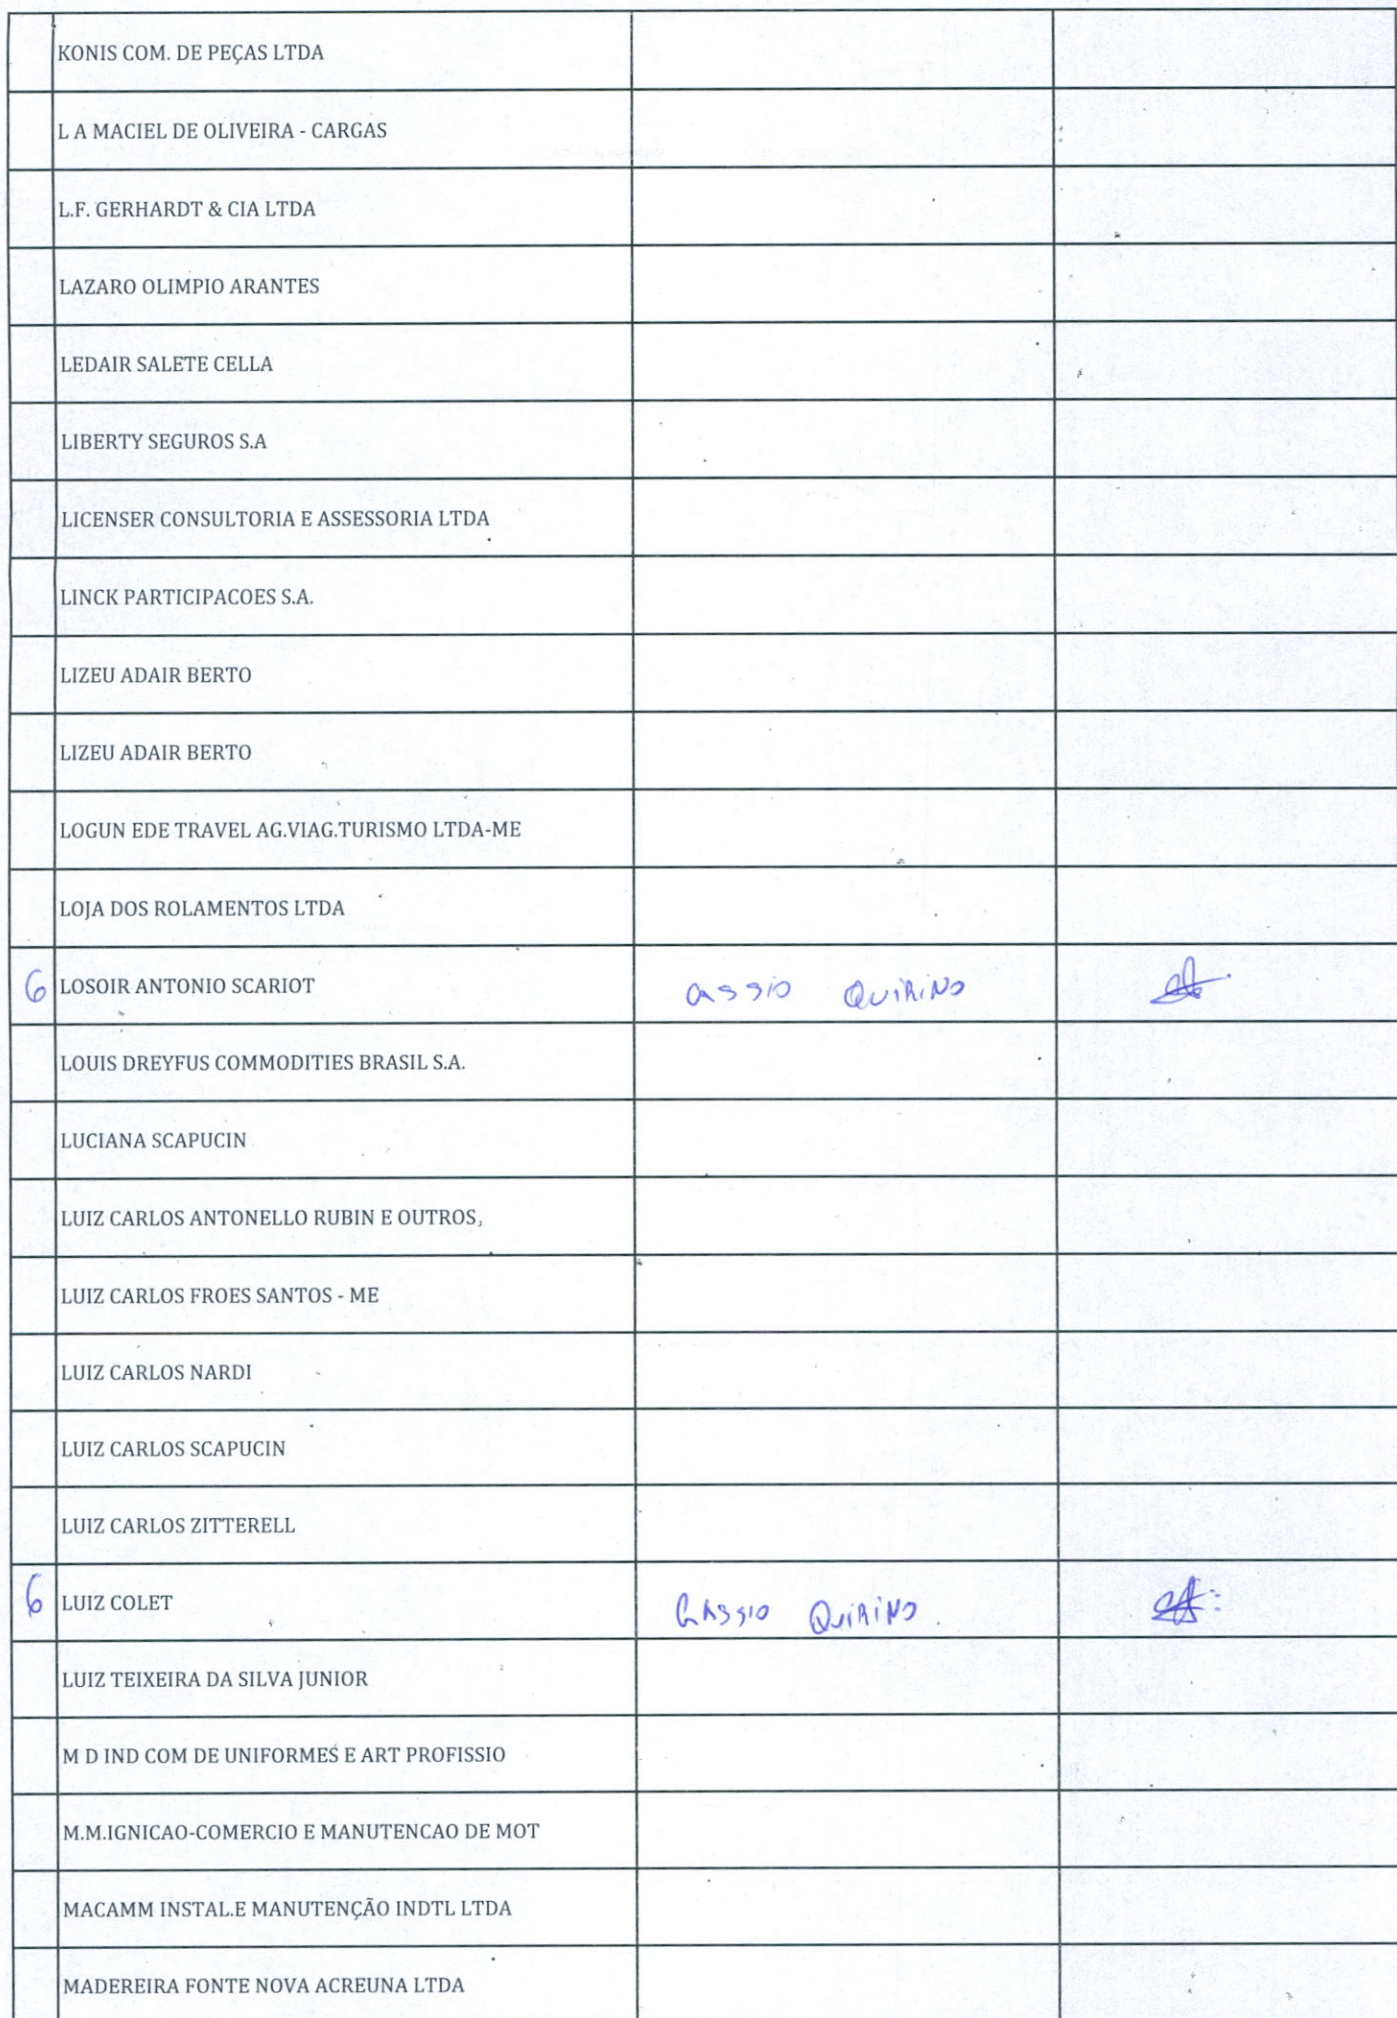 KONIS COM. DE PEÇAS LTDA
L A MACIEL DE OLIVEIRA - CARGAS
L.F. GERHARDT & CIA LTDA
LAZARO OLIMPIO ARANTES
LEDAIR SALETE CELLA
LIBERTY SEGUROS S.A
LICENSER CONSULTORIA E ASSESSORIA LTDA
LINCK PARTICIPACOES S.A.
LIZEU ADAIR BERTO
LIZEU ADAIR BERTO
LOGUN EDE TRAVEL AG.VIAG.TURISMO LTDA-ME
LOJA DOS ROLAMENTOS LTDA
6 LOSOIR ANTONIO SCARIOT CASSIO QUIRINO
LOUIS DREYFUS COMMODITIES BRASIL S.A.
LUCIANA SCAPUCIN
LUIZ CARLOS ANTONELLO RUBIN E OUTROS,
LUIZ CARLOS FROES SANTOS - ME
LUIZ CARLOS NARDI
LUIZ CARLOS SCAPUCIN
LUIZ CARLOS ZITTERELL
6 LUIZ COLET CASSIO QUIRINO
LUIZ TEIXEIRA DA SILVA JUNIOR
M D IND COM DE UNIFORMES E ART PROFISSIO
M.M.IGNICAO-COMERCIO E MANUTENCAO DE MOT
MACAMM INSTAL.E MANUTENÇÃO INDTL LTDA
MADEREIRA FONTE NOVA ACREUNA LTDA